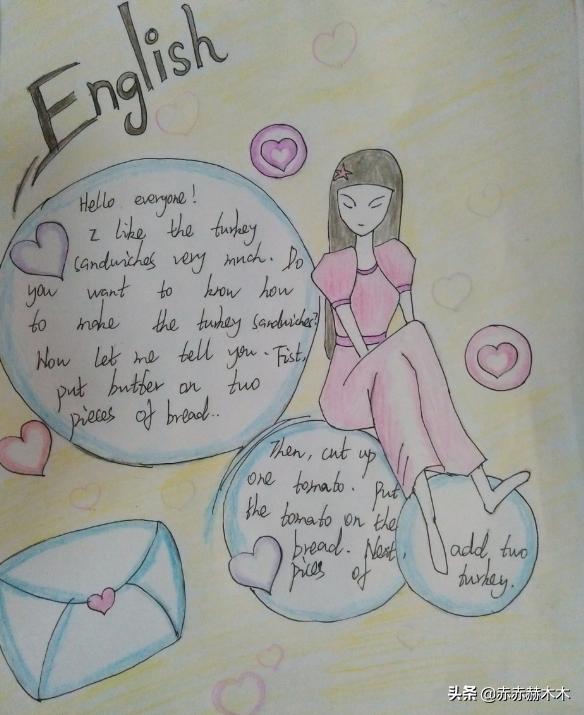 English
Hello everyone!
I like the turkey
sandwiches very much. Do
you want to know how
to make the turkey sandwiches?
Now let me tell you. Fist,
put butter on two
pieces of bread..
Then, cut up
one tomato. Put
the tomato on the
bread. Next, add two
pices of turkey.
头条 @赤赤赫木木